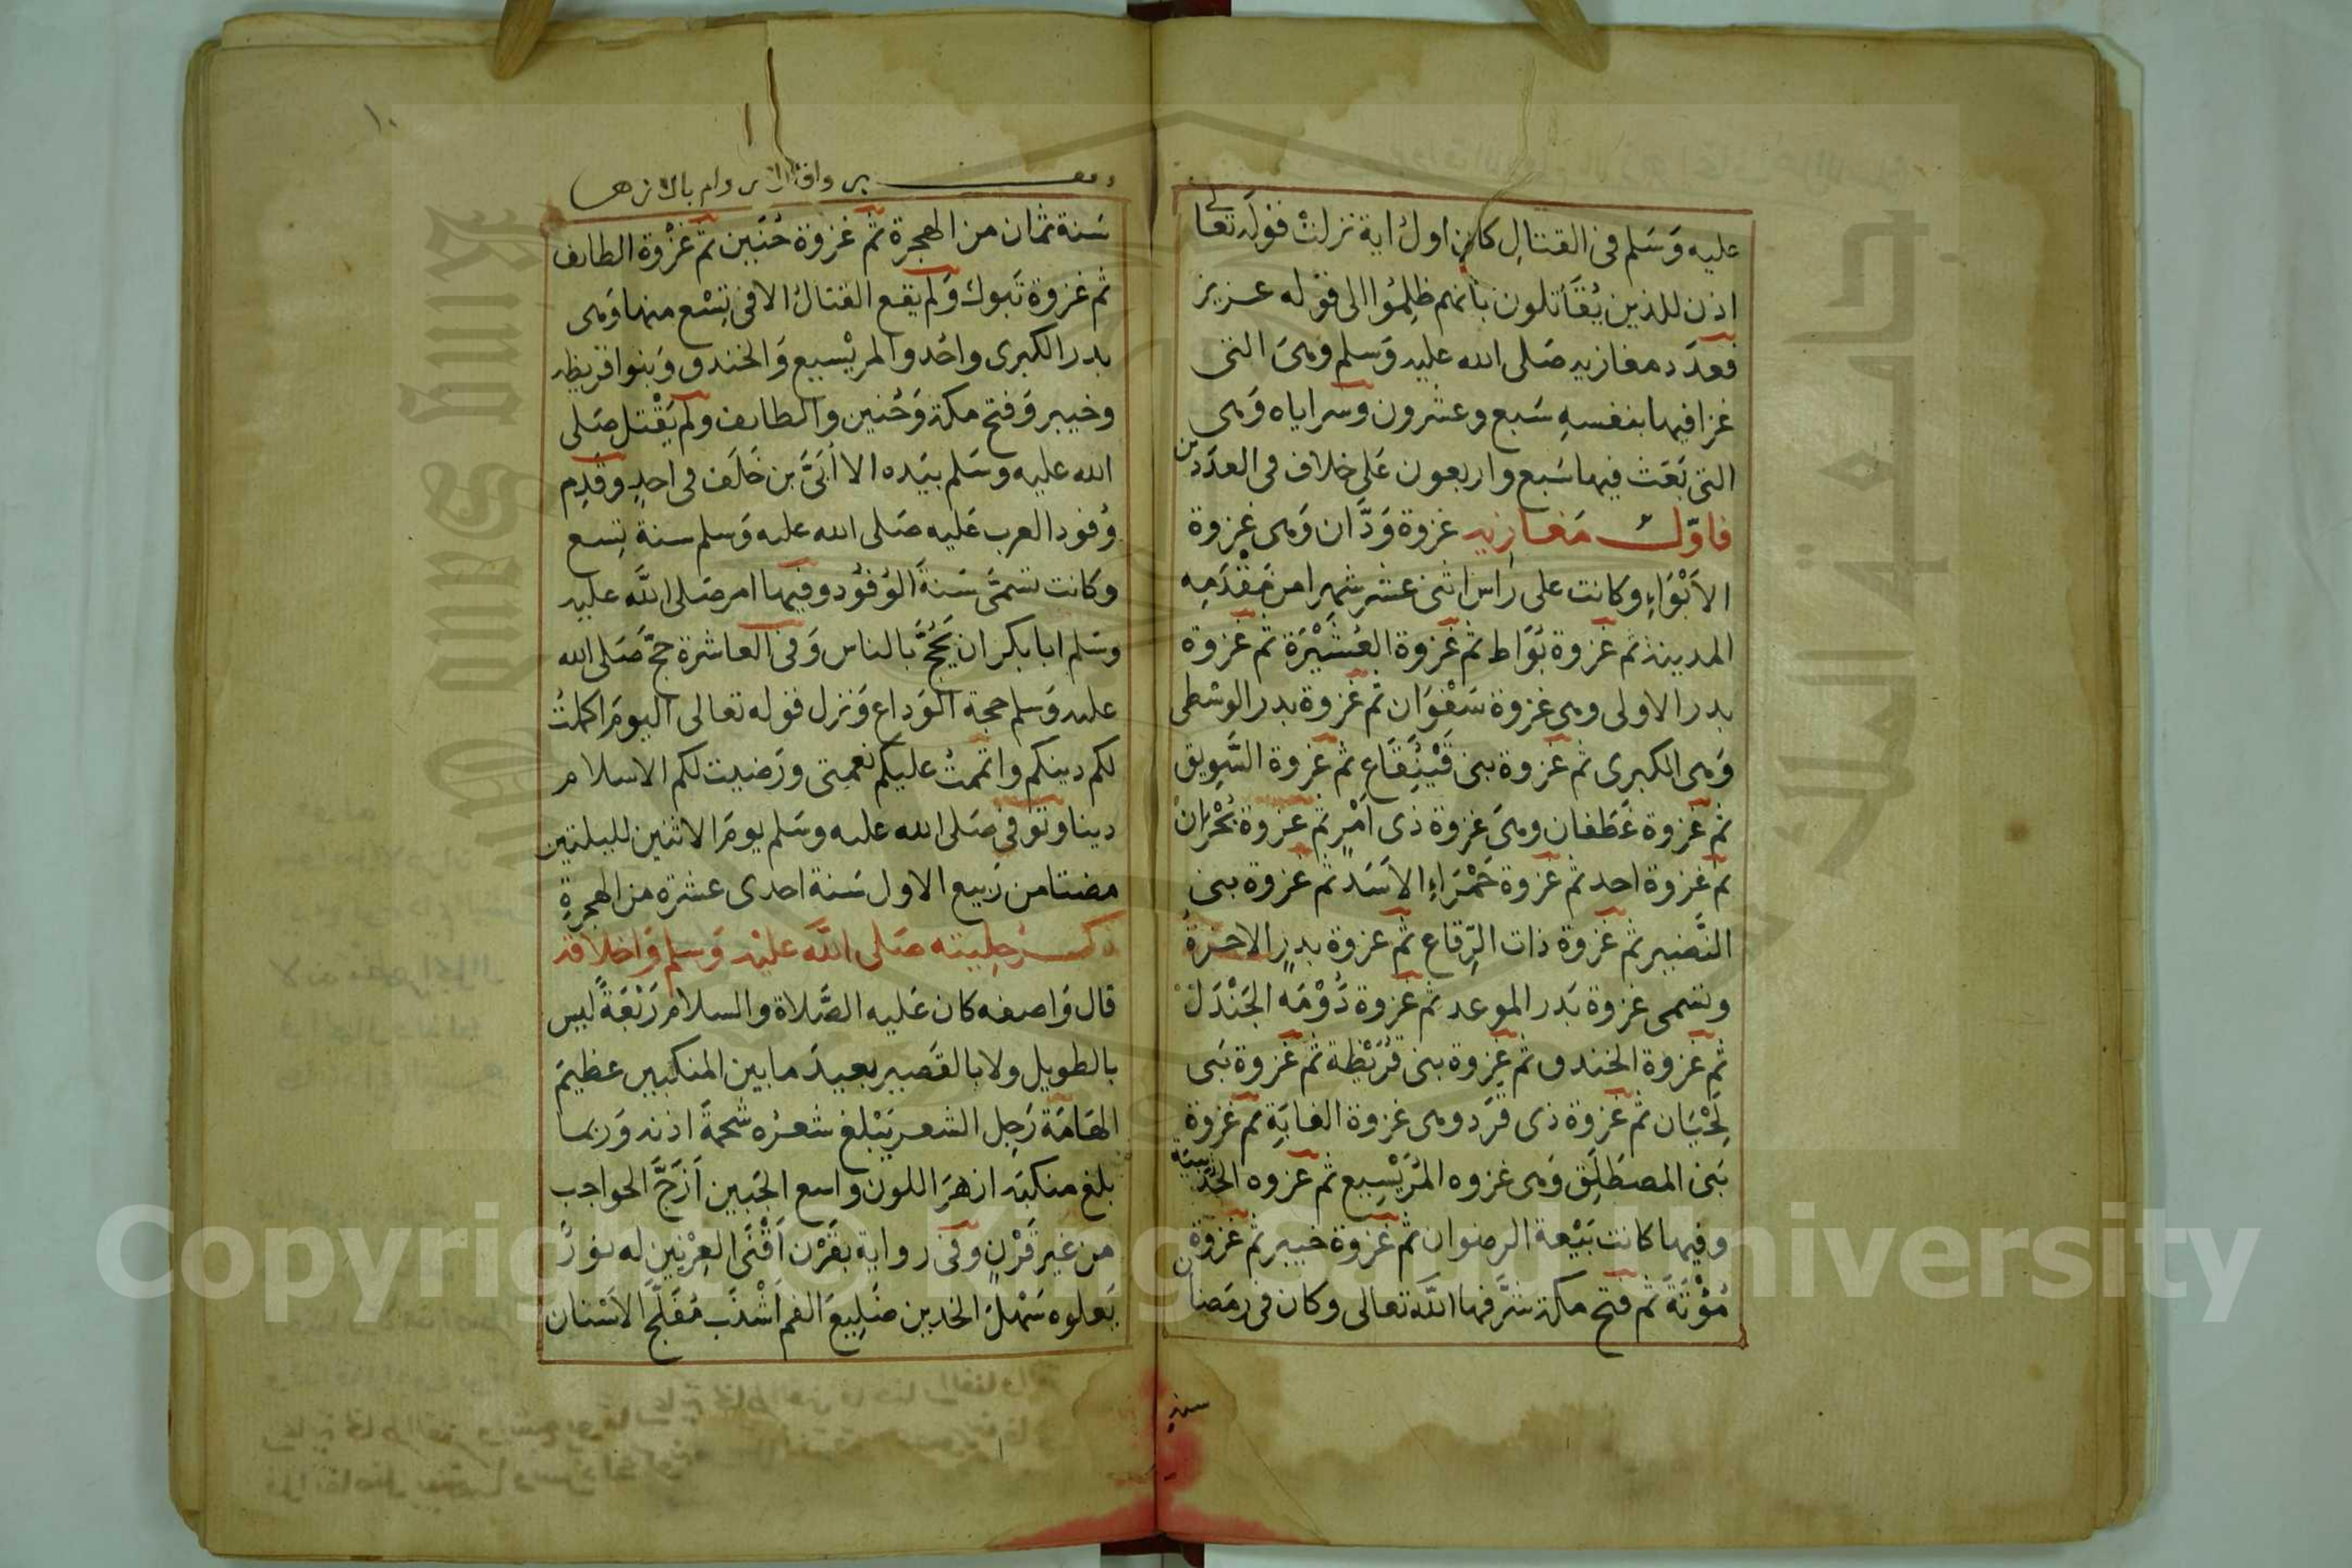 عليه وَسَلم فى القتالِ كان اول اية نزلت قوله تعالى
اذن للذين يُقَاتَلون بانهم ظلِمُوا الى قوله عزيز
فعدَد مغازيه صَلى الله عليه وَسلم وهىَ التى
غزا فيها بنفسهِ سَبع وعشرون وسراياه وَهى
التى بَعَث فيها سَبع واربعون عَلى خلاف فى العدَدين
فاوّل مَغازيه غزوة وَدَّان وَهى غزوة
الاَبْوَاءِ وكانت على راس اثنى عشر شهرا من مَقْدَمِه
المدينة ثم غزوة بُوَاط ثم غزوة العُشَيْرَة ثم غزوة
بدر الاولى وهى غزوة سَفْوَان ثم غزوة بدر الوسْطى
وَهى الكبرى ثم غزوة بنى قَيْنُقَاعِ ثم غزوة السَّوِيق
ثم غزوة غَطَفان وهىَ غزوة ذى اَمْرٍ ثم غزوة بُحْرَانْ
ثم غزوة احد ثم غزوة حَمْرَاءِ الاَسَدِ ثم غزوة بنى
النَّضير ثم غزوة ذات الرِّقاع ثم غزوة بدرٍ الاخرَةُ
وتسمى غزوة بَدر الموعد ثم غزوة دُوْمَه الجَنْدَلْ
ثم غزوة الخندق ثم غزوة بنى قُرَيْظة ثم غزوة بَنى
لِحْيَان ثم غزوة ذى قرَد وهى غزوة الغابَةِ ثم غزوة
بَنى المصطَلِق وَهى غزوه المُرَيْسِيع ثم غزوه الحُدَيبيَه
وفيها كانت بَيْعة الرضوان ثم غزوة خيبر ثم غزوة
مُؤْتَةَ ثم فتح مكة شرَّفها اللَّه تعالى وكان فى رمَضان
سنة
١٠
سَنة ثمان من الهجرة ثم غزوة حُنَين ثم غزْوة الطايف
ثم غزوة تَبوك وَلم يقع القتالُ الا فى تِسْع منها وَهى
بدر الكبرى واحُد والمريْسيع وَالخندق وَبنوا قريظه
وخيبر وَفتح مكة وَحُنين والطايف ولم يَقْتل صَلى
الله عليه وسَلم بيَده الا اُبَىَّ بن خَلَف فى احدٍ وقَدِم
وُفود العرب عَليه صَلى الله عليه وَسلم سنة تِسع
وكانت تسمَّى سَنةَ الوُفوُد وفيها امر صَلى اللَّه عليه
وسَلم ابا بكر ان يَحُجَّ بالناس وَفى العاشرة حجّ صَلى الله
عليه وَسلم حجة الوَداع وَنزل قوله تعالى اليومَ اكملتُ
لكم دينكم واتممتُ عليكم نعمتى ورَضيت لكم الاسلام
دينا وتوفى صَلى الله عليه وسَلم يومَ الاثنين لليلتين
مضتا من رَبيع الاول سَنة احدى عشرة من الهجرةِ
ذكر حِليته صَلى اللَّه عليْه وَسلم وَاخلاقه
قال وَاصفه كان عَليه الصَّلاة والسلام رَبْعَةً ليس
بالطويل ولا بالقَصير بعيدَ ما بين المنكبين عظيمَ
الهَامَة رَجِل الشعر يَبْلغ شعرُه شحمَة اذنه وَربما
بلغ منكبَه ازهَرَ اللون واسع الجَبين اَزَجَّ الحواجب
من غير قَرْنٍ وفى رواية بقَرْن اَقْنَى العِرْنين له نورٌ
يَعلوه سَهْلُ الخدين ضَلِيعَ الفم اَشْنَب مُفَلَّج الاَسْنان
Copyright © King Saud University
جامعة الملك سعود
King Saud University